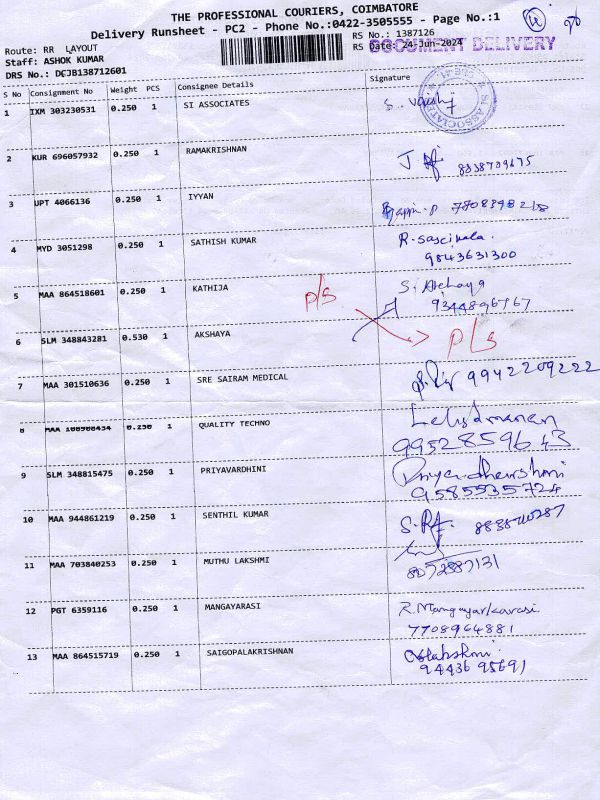 THE PROFESSIONAL COURIERS, COIMBATORE
Delivery Runsheet - PC2 - Phone No.:0422-3505555 - Page No.:1
Route: RR LAYOUT
RS No.: 1387126
Staff: ASHOK KUMAR
RS Date: 24-Jun-2024
DOCUMENT DELIVERY
DRS No.: DCJB138712601
S No Consignment No Weight PCS Consignee Details Signature
1 IXM 303230531 0.250 1 SI ASSOCIATES
2 KUR 696057932 0.250 1 RAMAKRISHNAN
3 UPT 4066136 0.250 1 IYYAN
4 MYD 3051298 0.250 1 SATHISH KUMAR R. Sasimala
9843631300
5 MAA 864518601 0.250 1 KATHIJA P/S S. Atchaya
9344896767
6 SLM 348843281 0.530 1 AKSHAYA P/S
7 MAA 301510636 0.250 1 SRE SAIRAM MEDICAL 9942209222
8 MAA 0.250 1 QUALITY TECHNO
9952859643
9 SLM 348815475 0.250 1 PRIYAVARDHINI
9585535724
10 MAA 944861219 0.250 1 SENTHIL KUMAR
11 MAA 703840253 0.250 1 MUTHU LAKSHMI
12 PGT 6359116 0.250 1 MANGAYARASI R. Mangayarkarasi
7708964881
13 MAA 864515719 0.250 1 SAIGOPALAKRISHNAN
9443695691